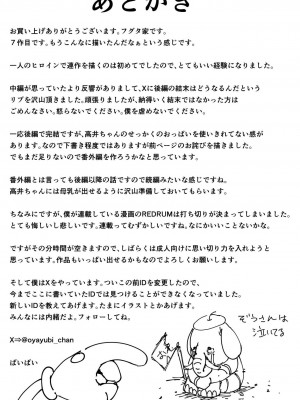 あとがき
お買い上げありがとうございます。フグタ家です。
7作目です。もうこんなに描いたんだなぁという感じです。
一人のヒロインで連作を描くのは初めてでしたので、とてもいい経験になりました。
中編が思っていたより反響がありまして、Xに後編の結末はどうなるんだという
リプを沢山頂きました。頑張りましたが、納得いく結末ではなかった方は
ごめんなさい。怒らないでください。僕を虐めないでください。
一応後編で完結ですが、高井ちゃんのせっかくのおっぱいを使いきれてない感が
あります。なので下書き程度ではありますが前ページのお詫びを描きました。
でもまだ足りないので番外編を作ろうかなと思っています。
番外編とは言っても後編以降の話ですので続編みたいな感じですね。
高井ちゃんには母乳が出せるように沢山準備しておいてもらいます。
ちなみにですが、僕が連載している漫画のREDRUMは打ち切りが決まってしまいました。
とても悔しいし悲しいです。連載ってむずかしいですね。なにかいいことないかな。
ですがその分時間が空きますので、しばらくは成人向けに思い切り力を入れようと
思っています。作品もいっぱい出せるかもなのでよろしくお願いします。
そして僕はXをやっています。ついこの前IDを変更したので、
今までここに書いていたIDでは見つけることができなくなっていました。
新しいIDを教えてあげます。たまにイラストとかあげます。フォローしてね。
みんなには内緒だよ。
X⇒@oyayubi_chan
ばいばい
ぞうさんは
泣いてる